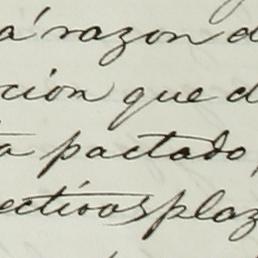 á razon d
cion que d
ta pactado,
ectivos plaz